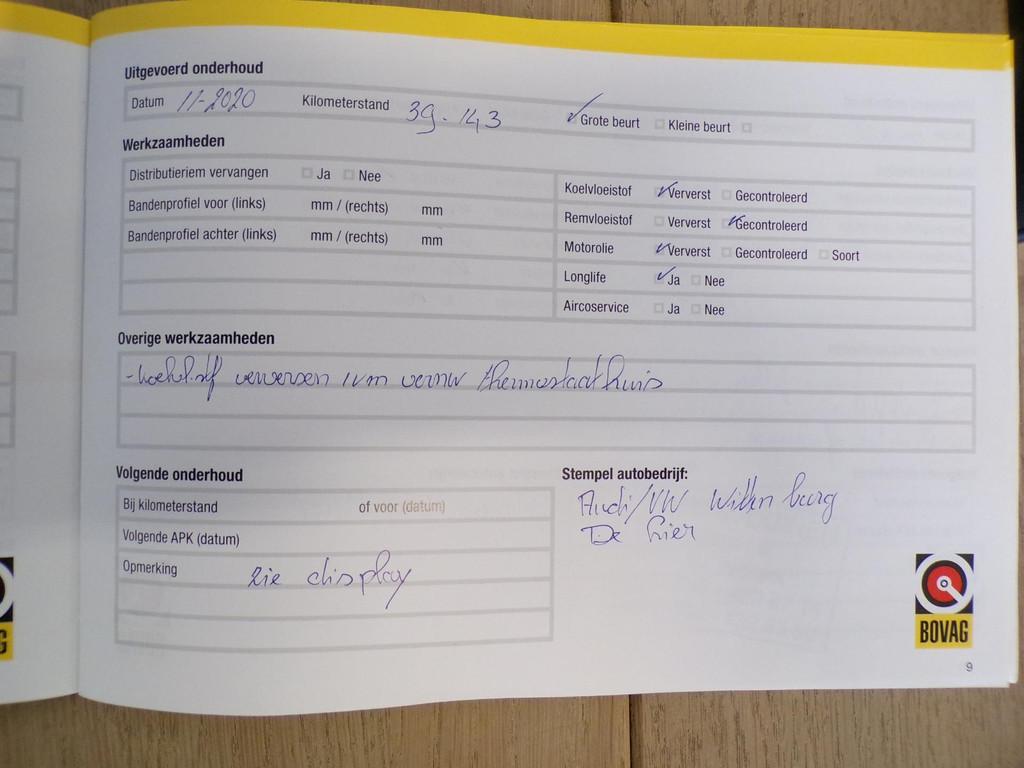 Uitgevoerd onderhoud
Datum 11-2020 Kilometerstand 39.143 Grote beurt Kleine beurt
Werkzaamheden
Distributieriem vervangen Ja Nee
Bandenprofiel voor (links) mm / (rechts) mm
Bandenprofiel achter (links) mm / (rechts) mm
Koelvloeistof Ververst Gecontroleerd
Remvloeistof Ververst Gecontroleerd
Motorolie Ververst Gecontroleerd Soort
Longlife Ja Nee
Aircoservice Ja Nee
Overige werkzaamheden
- verversen ivm thermostaathuis
Volgende onderhoud
Bij kilometerstand of voor (datum)
Volgende APK (datum)
Opmerking zie display
Stempel autobedrijf:
Audi/VW
De Lier
BOVAG
9